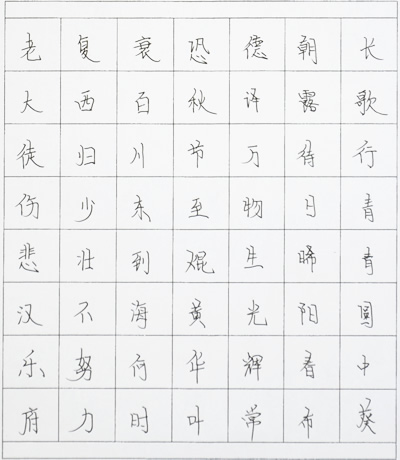 长歌行青青園中葵
朝露待日晞阳春布
德译万物生光辉常
恐秋节至焜黄华叶
衰百川东到海何时
复西归少壮不努力
老大徒伤悲汉乐府